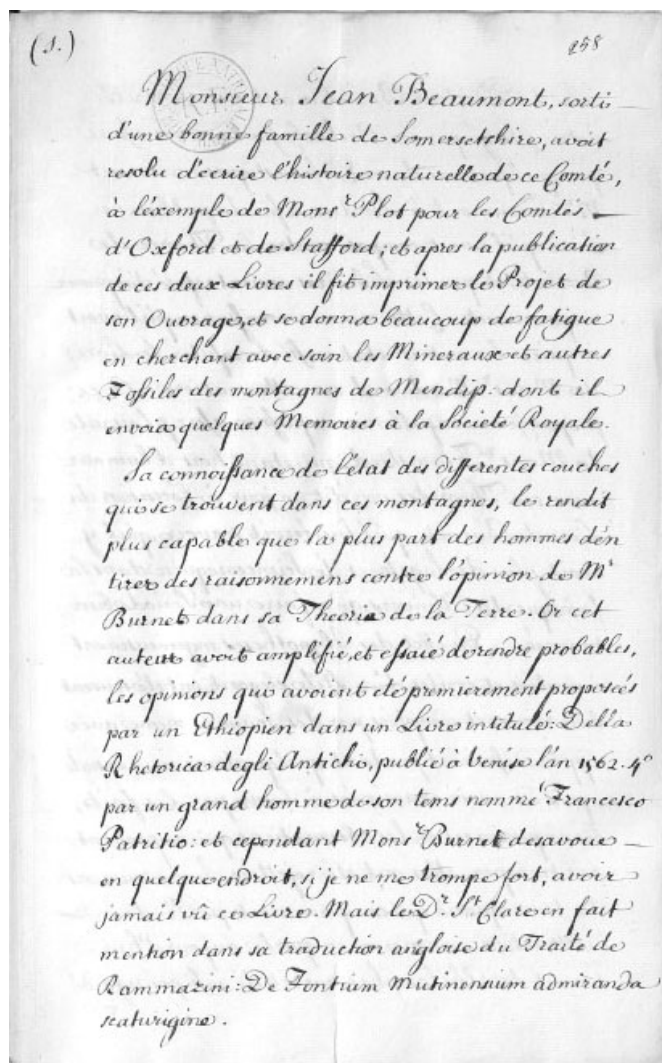 (1.)
258
Monsieur Jean Beaumont, sorti
d'une bonne famille de Somersetshire, avoit
resolu d'écrire l'histoire naturelle de ce Comté,
à l'éxemple de Monsr Plot pour les Comtés
d'Oxford et de Stafford; et apres la publication
de ces deux Livres il fit imprimer le Projet de
son Ouvrage, et se donna beaucoup de fatigue
en cherchant avec soin les Mineraux et autres
Fossiles des montagnes de Mendip. dont il
envoia quelques Memoires à la Societé Royale.
Sa connoissance de l'état des differentes couches
qui se trouvent dans ces montagnes, le rendit
plus capable que la plus part des hommes d'én
tirer des raisonnemens contre l'opinion de Mr
Burnet dans sa Theorie de la Terre. Or cet
auteur avoit amplifié, et essaié de rendre probables,
les opinions qui avoient été premierement proposées
par un Ethiopien dans un Livre intitulé: Della
Rhetorica degli Antichi, publié à Venise l'an 1562. 4o
par un grand homme de son tems nommé Francesco
Patritio: et cependant Monsr Burnet desavoue
en quelque endroit, si je ne me trompe fort, avoir
jamais vû ce Livre. Mais le Dr. St. Clare en fait
mention dans sa traduction angloise du Traité de
Rammazini: De Fontium Mutinensium admiranda
scaturigine.